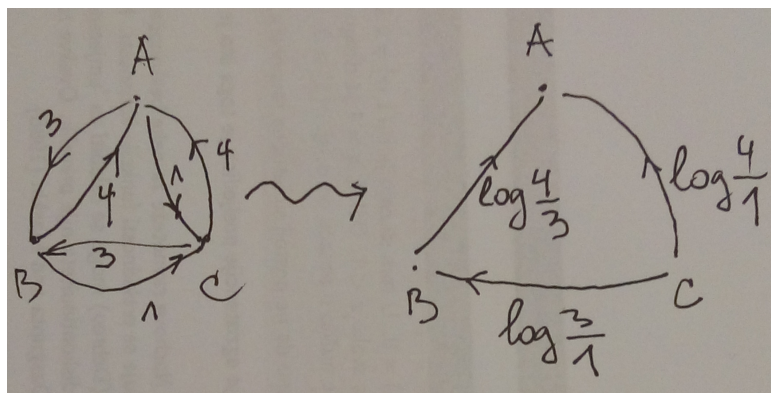 A
3
4
1
4
3
B
C
1
A
log 4/3
log 4/1
B
C
log 3/1